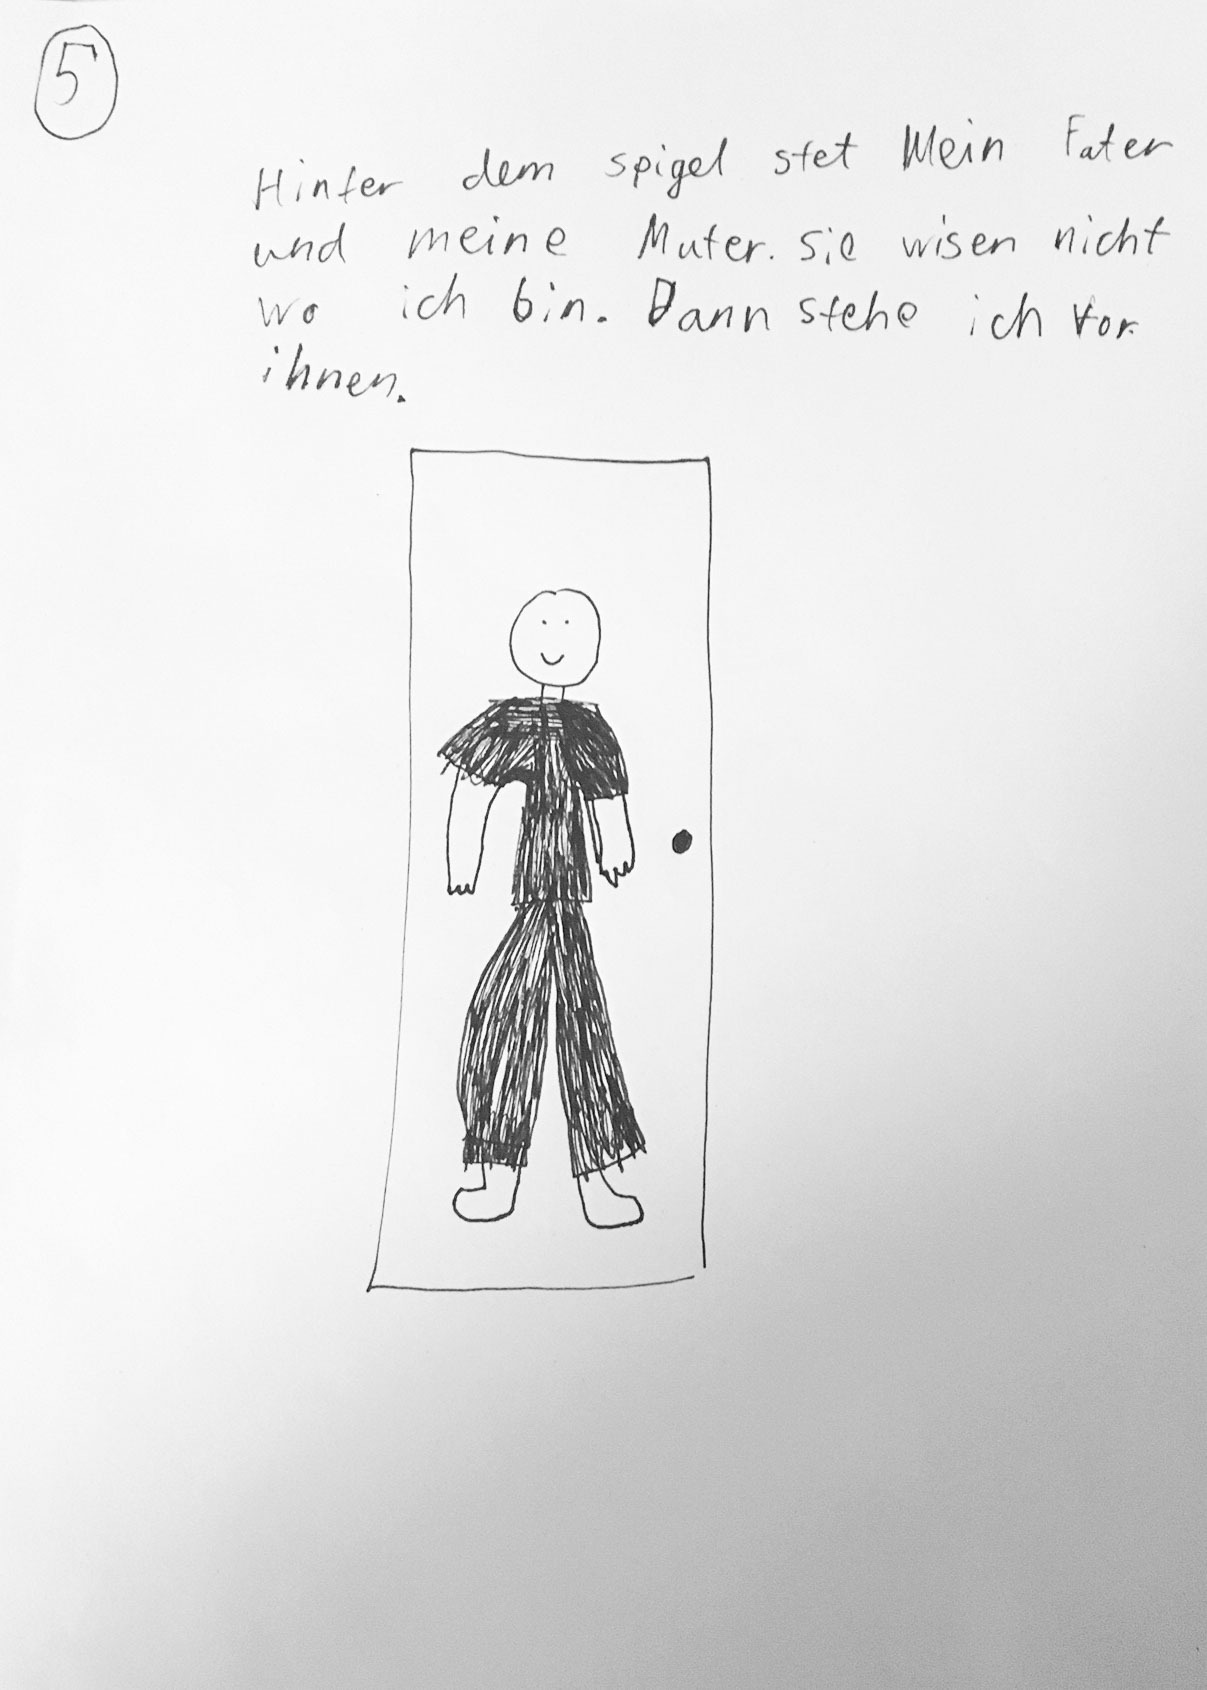 5
Hinter dem spigel stet Mein Fater
und meine Muter. Sie wisen nicht
wo ich bin. Dann stehe ich vor
ihnen.